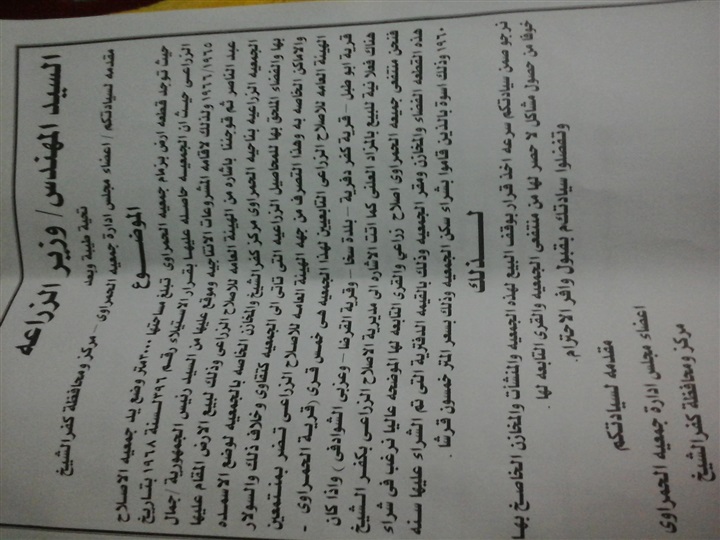 السيد المهندس / وزير الزراعه
مقدمه لسيادتكم / اعضاء مجلس ادارة جمعيه الحمراوى – مركز ومحافظة كفر الشيخ
تحية طيبة وبعد
الموضوع
حيث توجد قطعه ارض بزمام جمعيه الحمراوى تبلغ مساحتها ٣٠٠٠متر وضع يد جمعيه الاصلاح
الزراعى حيث ان الجمعيه حاصله عليها بقرار الاستيلاء رقم ٣٩٦ لسنة ١٩٦٨ بتاريخ
١٩٦٦/١٩٦٥ وذلك لاقامه المشروعات الانتاجيه وموقع عليها من السيد رئيس الجمهورية /جمال
عبد الناصر ثم فوجئنا باشاره من الهيئة العامه للاصلاح الزراعى وذلك لبيع الارض المقام عليها
الجمعيه الزراعيه بناحيه الحمراوى مركز كفر الشيخ والمخازن الخاصه بالجمعيه لوضع الاسمده
بها والفضاء الملحق بها للمحاصيل الزراعيه التى تاتى الى الجمعيه كتقاوى وخلاف ذلك والسولار
والاماكن الخاصه به وهذا التصرف من جهه الهيئة العامه للاصلاح الزراعى تضر بمنتفعين
الهيئة العامه للاصلاح الزراعى التابعيين لهذا الجمعيه هى خمس قرى (قرية الحمراوى –
قرية ابو طبل – قرية كفر دفرية – بلدة سخا – وقرية القرضا – وعزبى الشوادفى ) واذا كان
هناك فعلا نية للبيع بالمزاد العلنى كما اتت الاشاره الى مديرية الاصلاح الزراعى بكفر الشيخ
فنحن منتفعى جمعيه الحمراوى اصلاح زراعى والقرى التابعه لها الموضحه عاليا نرغب فى شراء
هذه القطعه الفضاء والمخازن ومقر الجمعيه وذلك بالقيمه الدفترية التى تم الشراء عليها سنه
١٩٦٠ وذلك اسوة بالذين قاموا بشراء سكن الجمعيه وذلك بسعر المتر خمسون قرشا .
لذلك
نرجو من سيادتكم سرعه اخذ قرار بوقف البيع لهذه الجمعيه والمنشات والمخازن الخاصة بها
خوفا من حصول مشاكل لا حصر لها من منتفعى الجمعيه والقرى التابعه لها .
وتفضلوا سيادتكم بقبول وافر الاحترام.
مقدمه لسيادتكم
اعضاء مجلس ادارة جمعيه الحمراوى
مركز ومحافظة كفر الشيخ